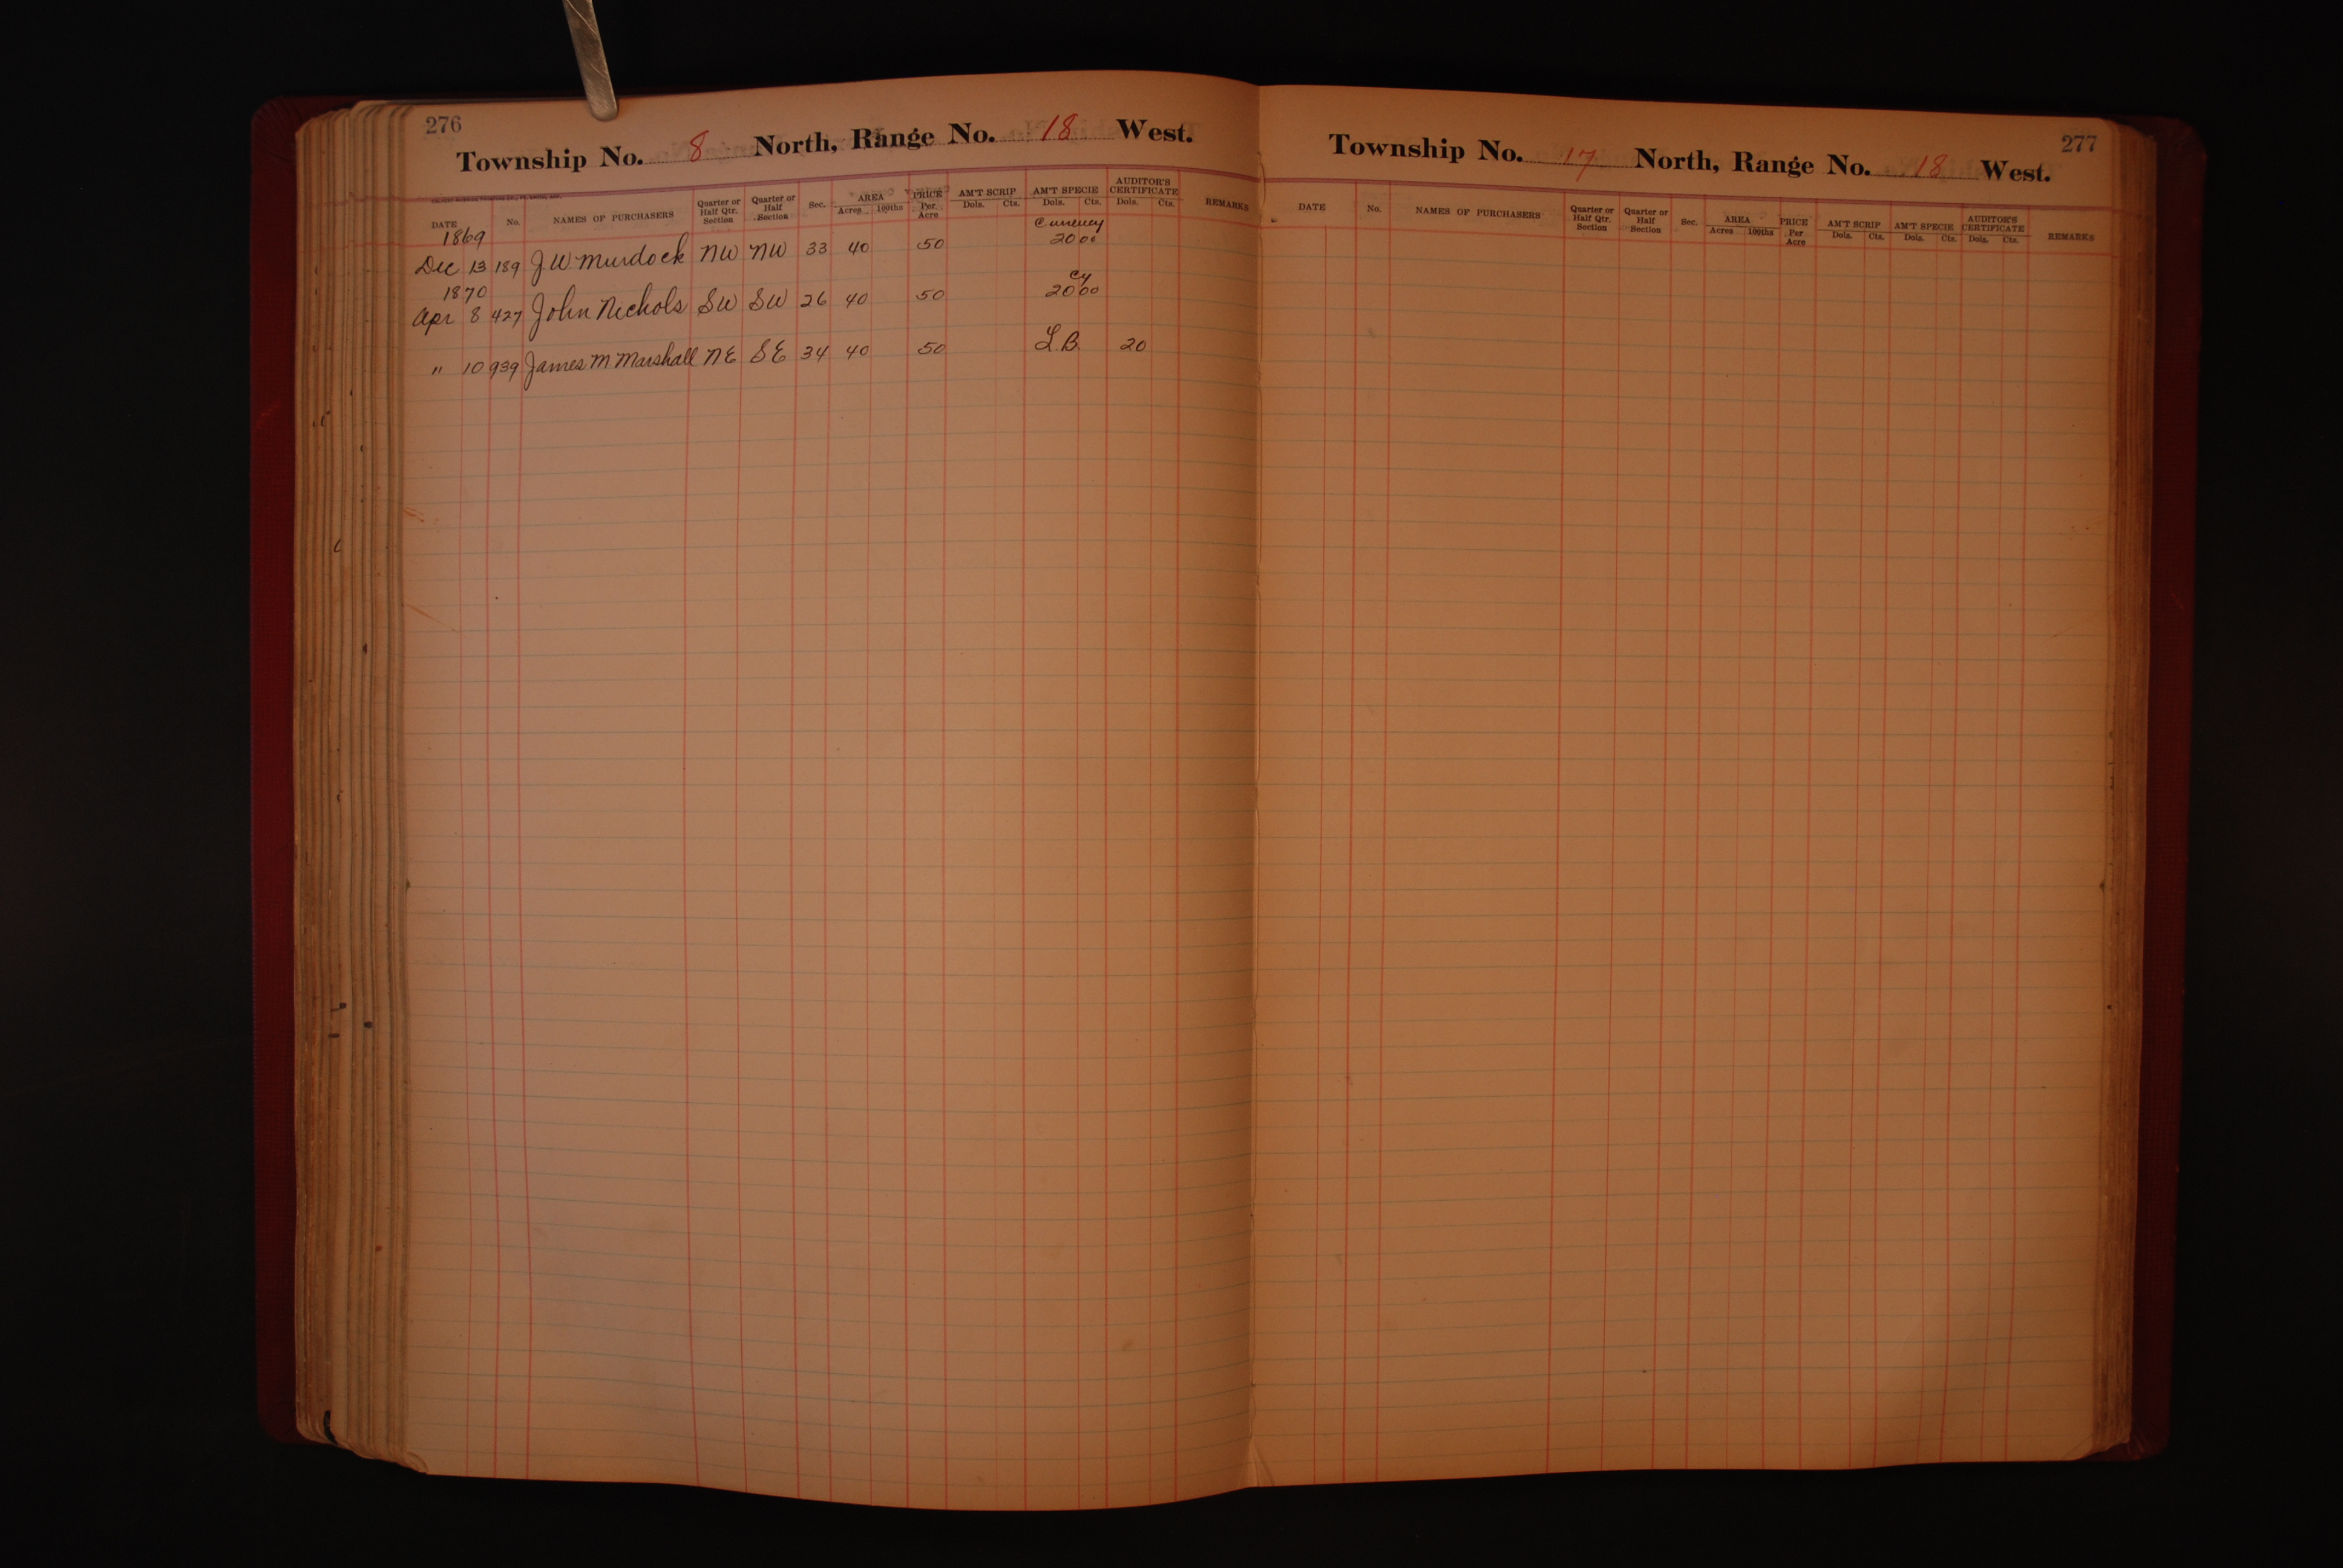 276
Township No. 8 North, Range No. 18 West.
DATE No. NAMES OF PURCHASERS Quarter or Half Qtr. Section Quarter or Half Section Sec. AREA Acres 100ths PRICE Per Acre AM'T SCRIP Dols. Cts. AM'T SPECIE Dols. Cts. AUDITOR'S CERTIFICATE Dols. Cts. REMARKS
1869 Currency
Dec 13 189 J. W Murdock NW NW 33 40 50 20 00
1870 Cy
Apr 8 427 John Nichols SW SW 26 40 50 20 00
" 10 939 James M Marshall NE SE 34 40 50 L.B. 20
277
Township No. 17 North, Range No. 18 West.
DATE No. NAMES OF PURCHASERS Quarter or Half Qtr. Section Quarter or Half Section Sec. AREA Acres 100ths PRICE Per Acre AM'T SCRIP Dols. Cts. AM'T SPECIE Dols. Cts. AUDITOR'S CERTIFICATE Dols. Cts. REMARKS